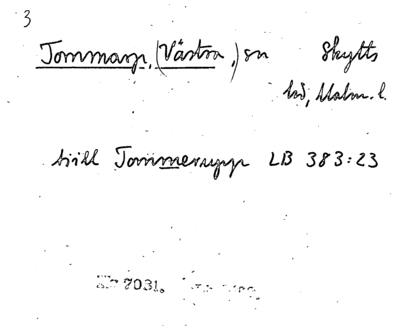 3
Tommarp, (Västra,) sn Skytts
hd, Malm. l.
till Tommerupp LB 383:23
7031.